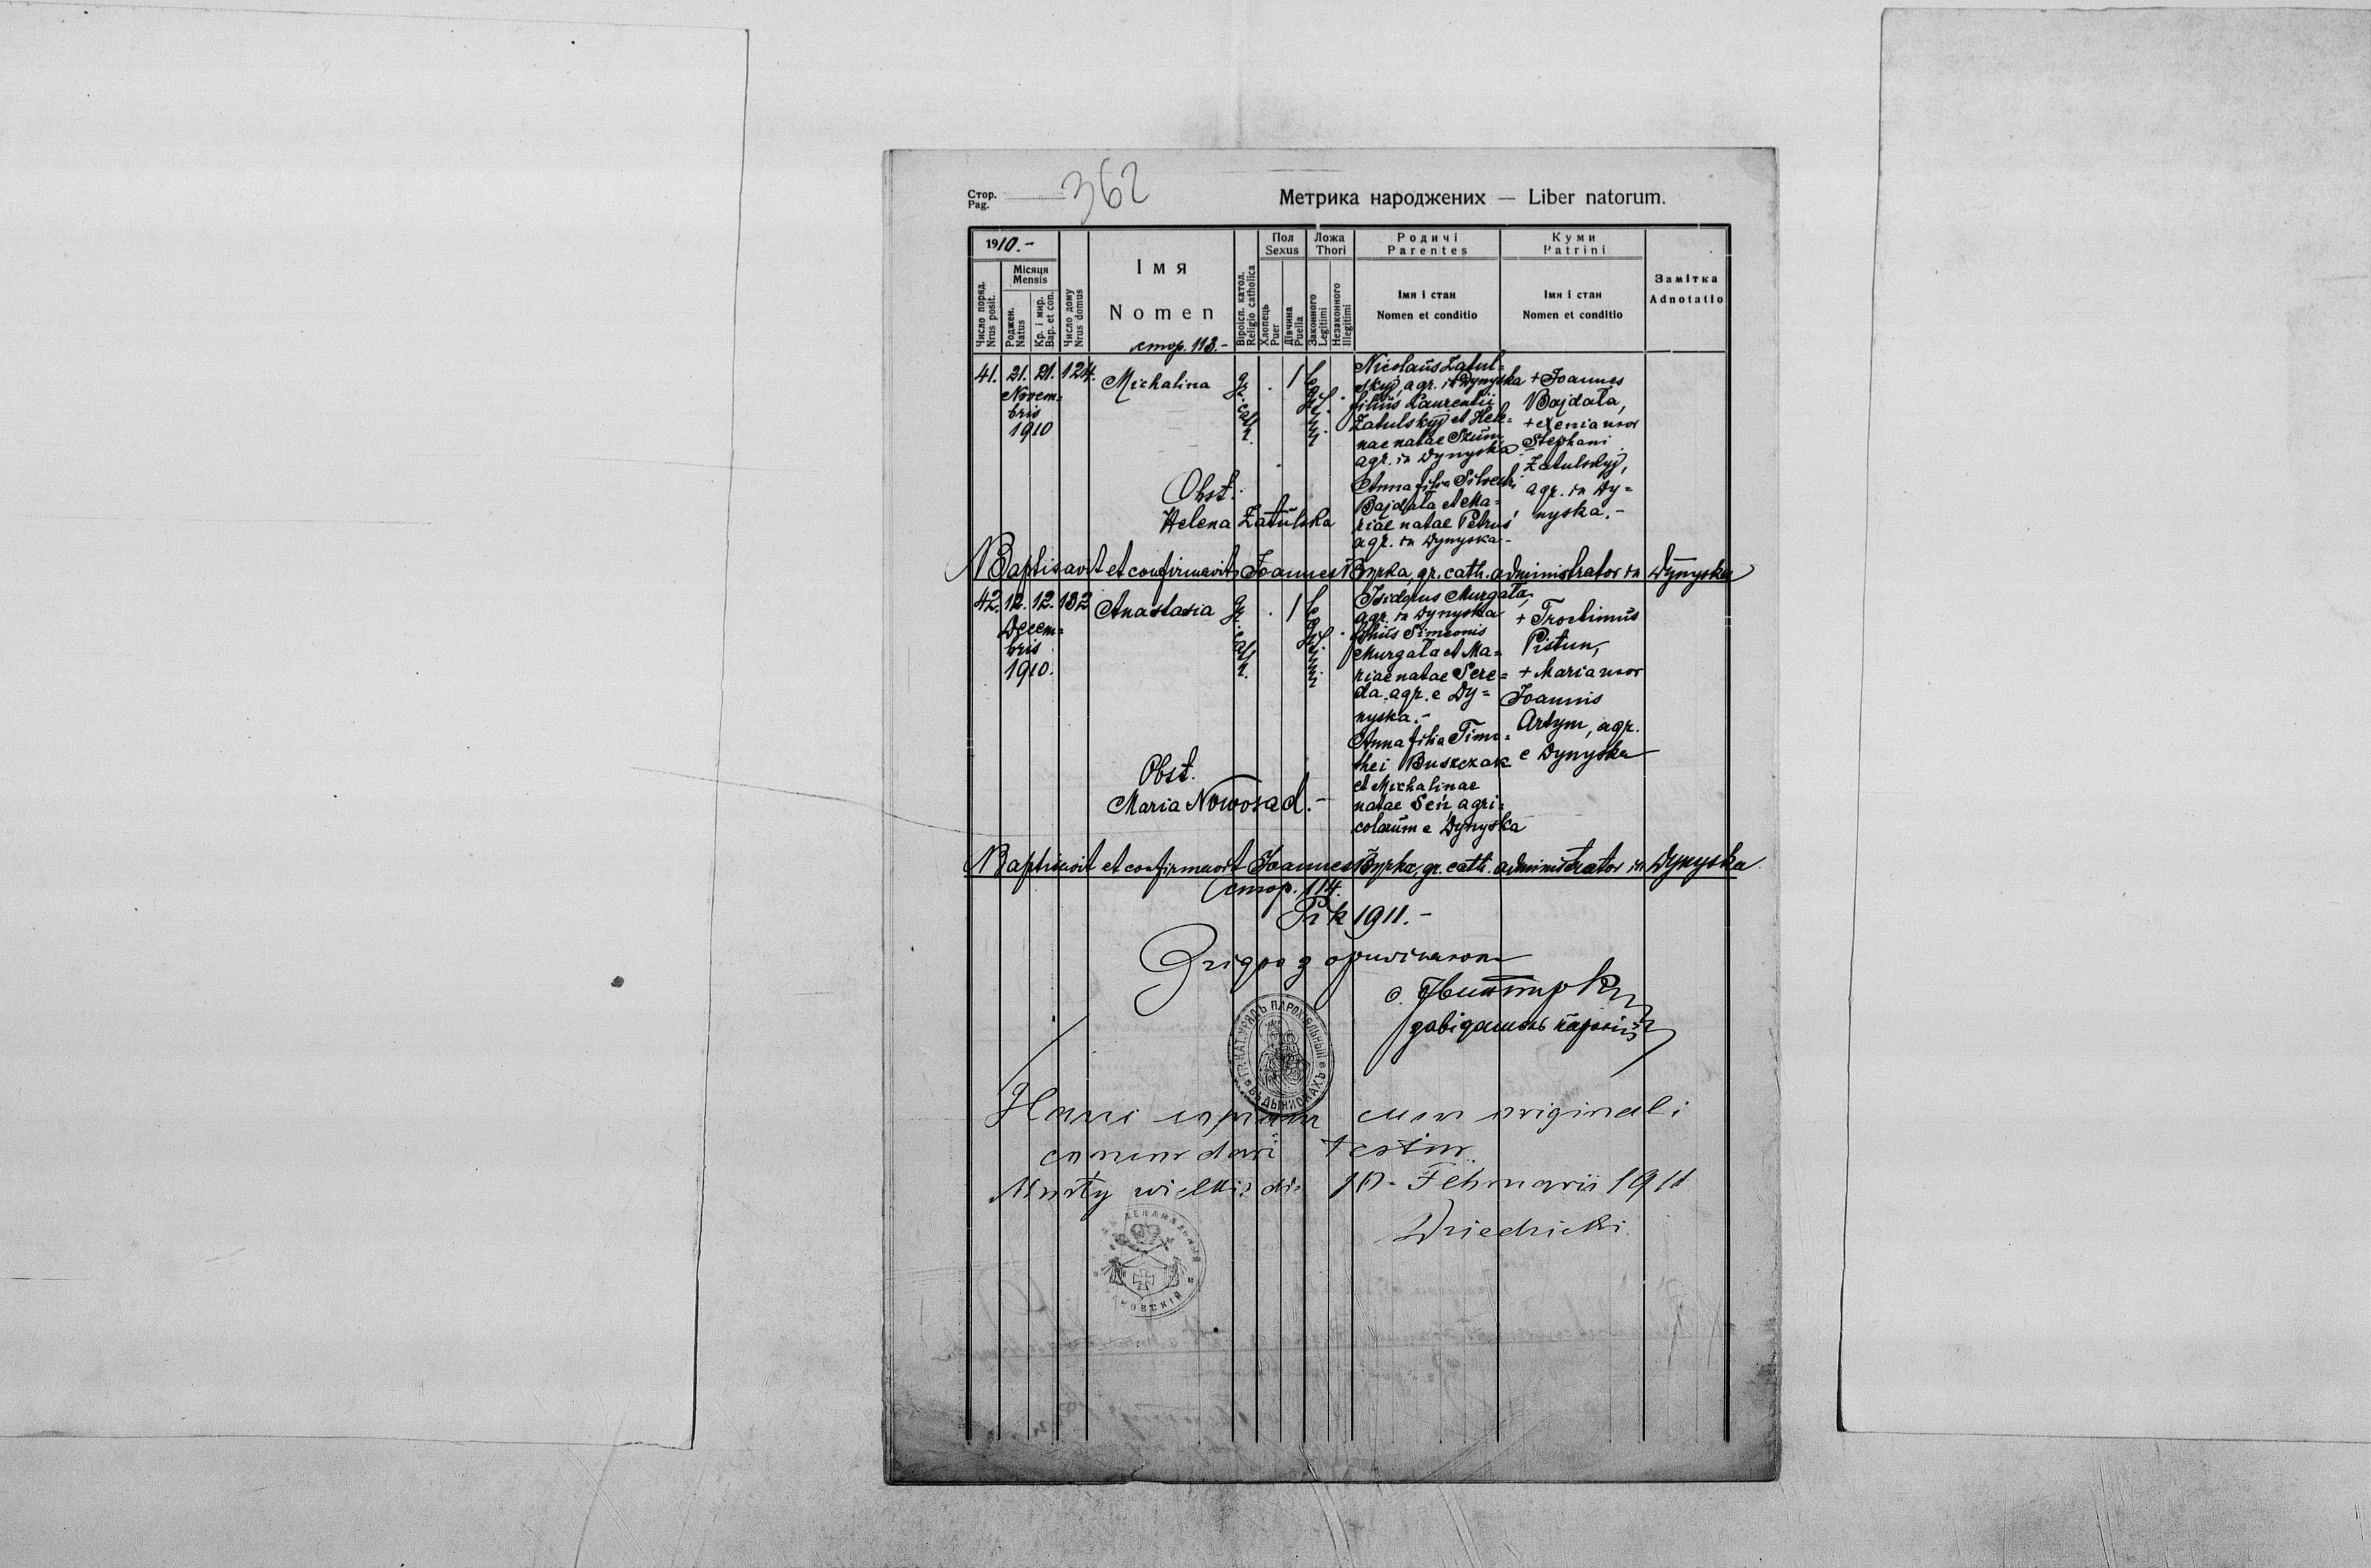 Стор.
Pag.
362
Метрика народжених — Liber natorum.
1910.-
Число поряд.
Nrus posit.
Місяця
Mensis
Роджен.
Natus
Кр. і мир.
Bap. et con.
Число дому
Nrus domus
Імя
Nomen
стор. 113.-
Віроісп. катол.
Religio catholica
Пол
Sexus
Хлопець
Puer
Дівчина
Puella
Ложа
Thori
Законного
Legitimi
Незаконного
Illegitimi
Родичі
Parentes
Імя і стан
Nomen et conditio
Куми
Patrini
Імя і стан
Nomen et conditio
Замітка
Adnotatio
41. 21. 21. 124.
Novem=
bris
1910
Michalina
gr. cath.
1
legitimi
Nicolaus Zatul=
skyj agr. in Dynyska
filius Laurentii
Zatulskyj et Hele=
nae natae Szum
agr. in Dynyska
Anna filia Silvestri
Bajdała et Ma=
riae natae Petrus
agr. in Dynyska-
+ Joannes
Bajdała,
+ Xenia uxor
Stephani
Zatulskyj,
agr. in Dy=
nyska.-
Obst.
Helena Zatulska
Baptisavit et confirmavit Joannes Byrka, gr. cath. administrator in Dynyska
42. 12. 12. 132
Decem=
bris
1910.
Anastasia
gr. cath.
1
legitimi
Isidorus Murgała,
agr. in Dynyska
filius Simeonis
Murgała et Ma=
riae natae Sere=
da agr. e Dy=
nyska.-
Anna filia Timo=
thei Buszczak
et Michalinae
natae Sen agri=
colarum e Dynyska
+ Trochimus
Pistun,
+ Maria uxor
Joannis
Artym, agr.
e Dynyska
Obst.
Maria Nowosad.-
Baptisavit et confirmavit Joannes Byrka, gr. cath. administrator in Dynyska
стор. 114.
Рік 1911.-
Згідно з
завідатель парохії
ГР. КАТ. УРЯДЪ ПАРОХІЯЛЬНЫЙ ВЪ ДЫНИСКАХЪ
Hanc copiam cum originali
concordari testor
Mosty wielkie die 10. Februarii 1911